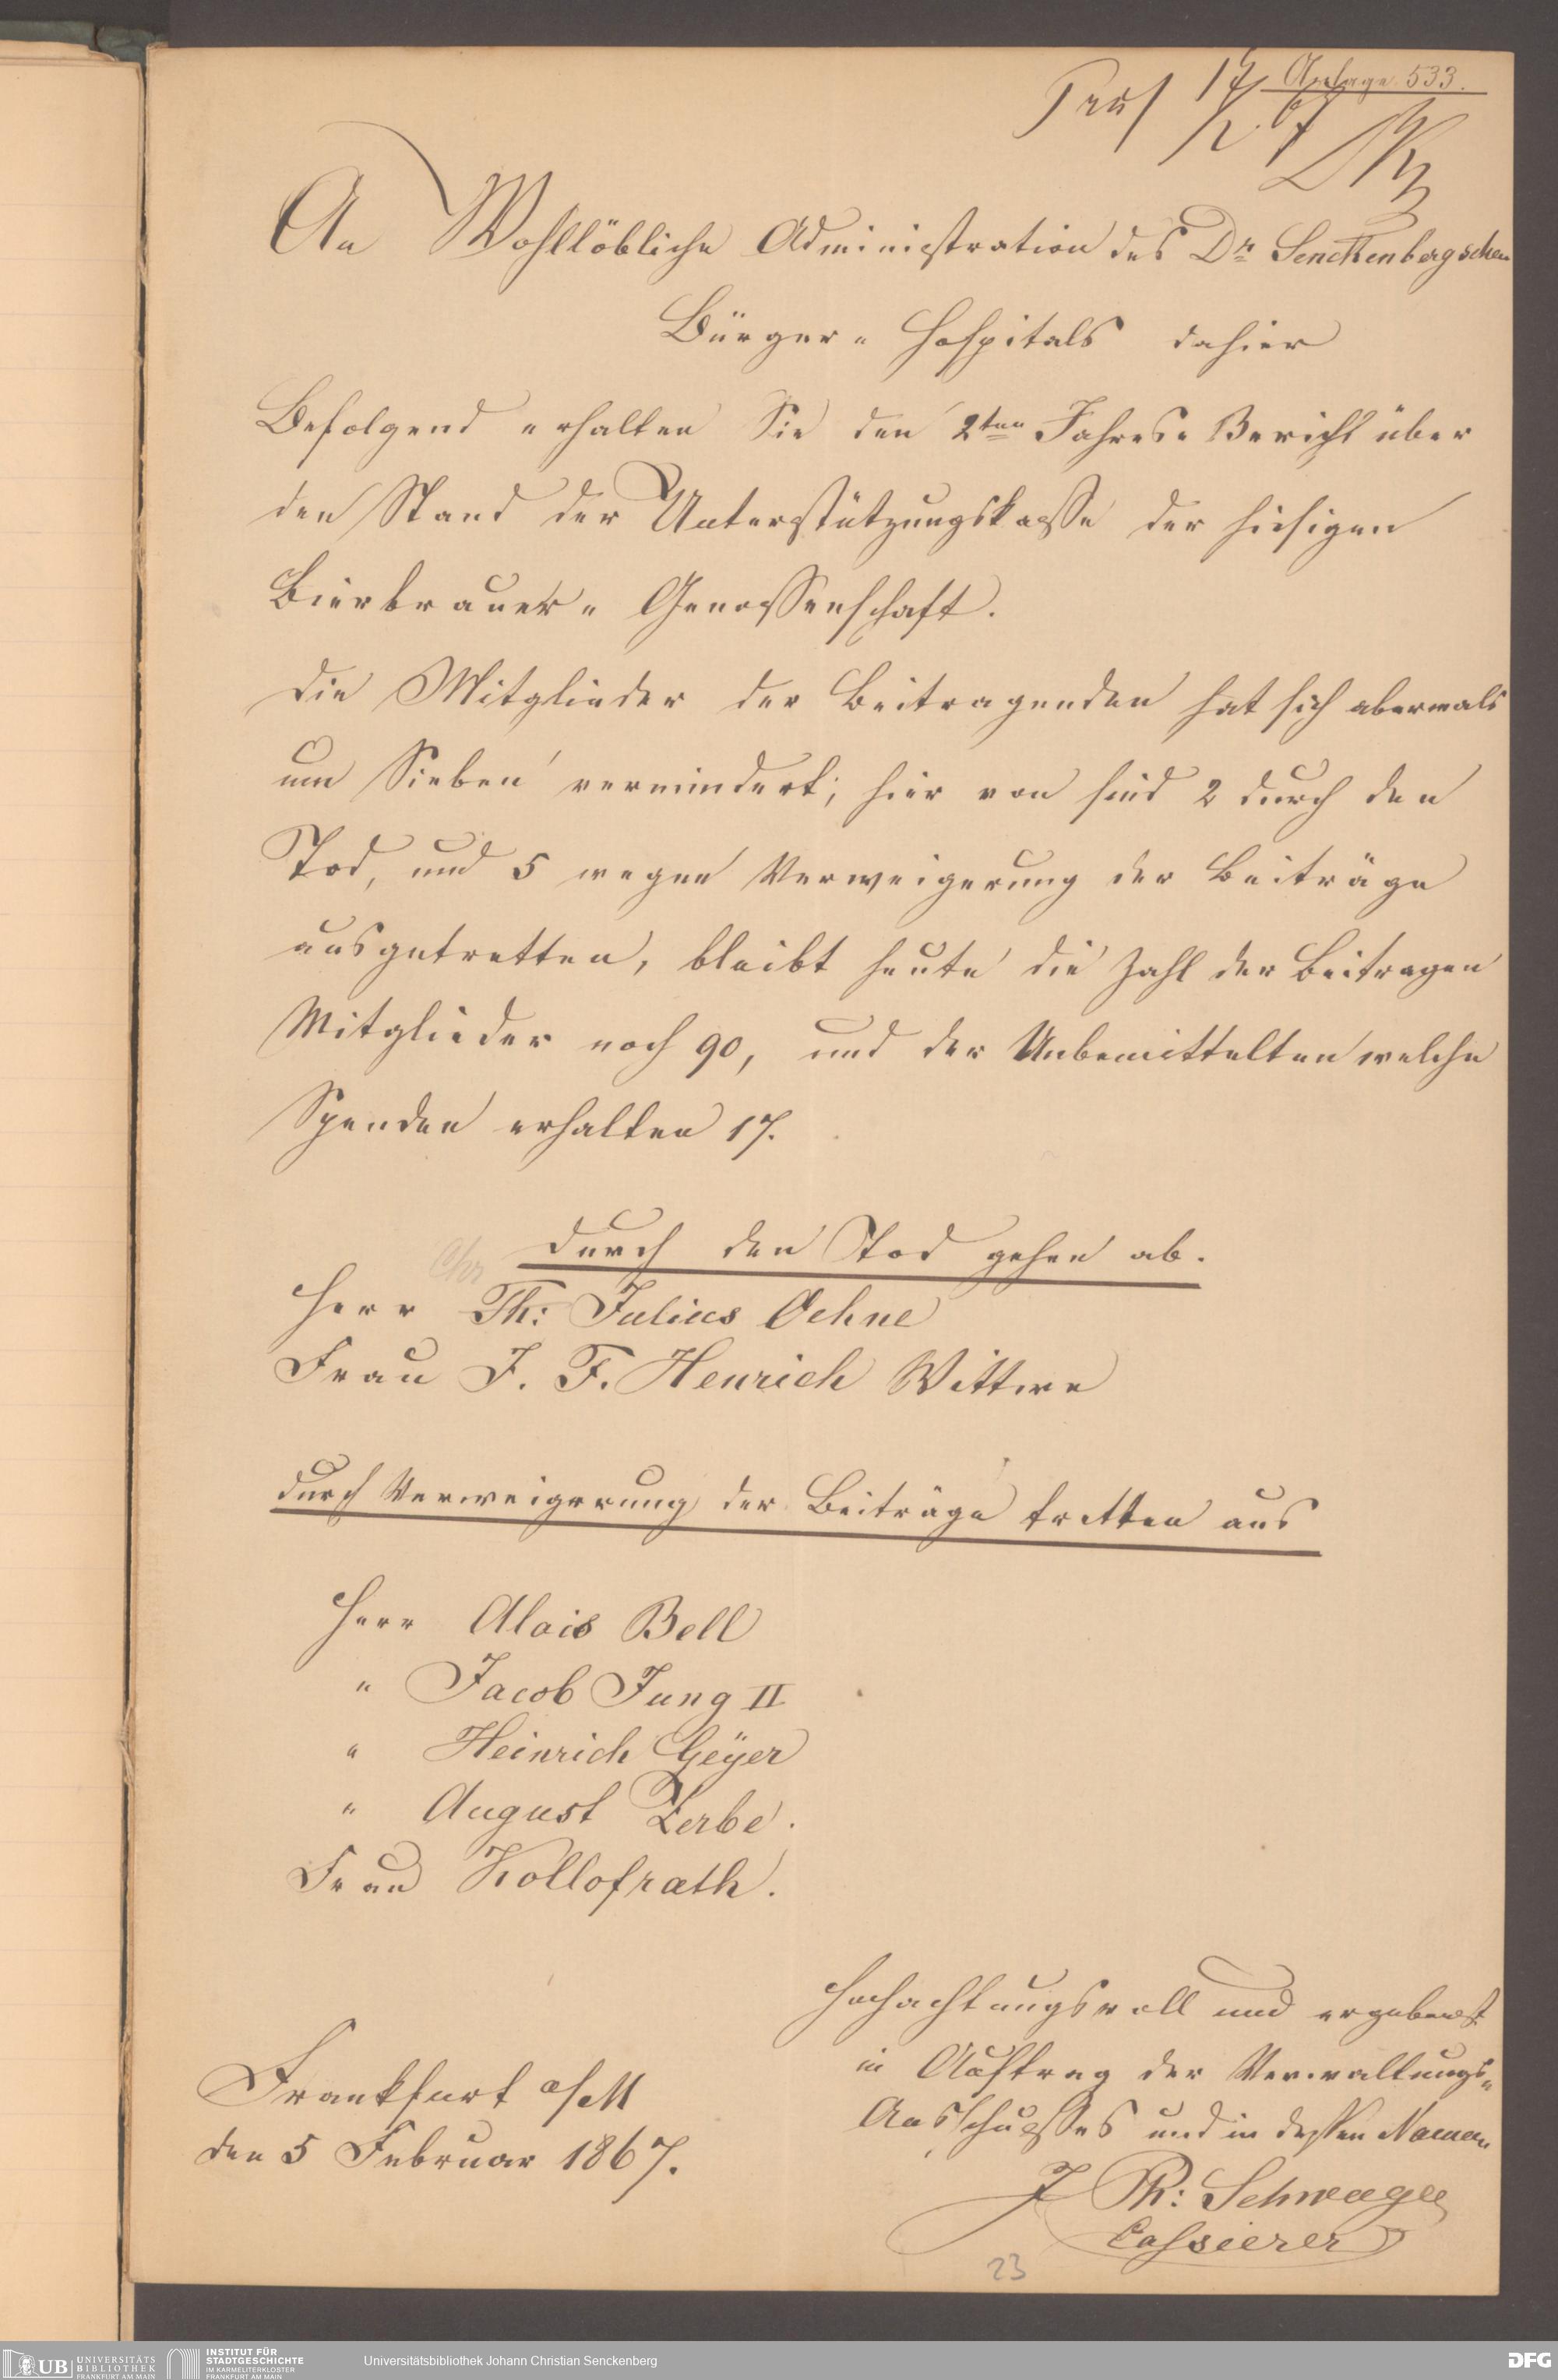 Anlage 533.
14/2. 67
An Wohllöbliche Administration des Dr Senckenbergschen
Bürger- Hospitals dahier
Befolgend erhalten Sie den 2ten Jahres- Bericht über
den Stand der Unterstützungskasse der hiesigen
Bierbrauer- Genossenschaft.
Die Mitglieder der Beitragenden hat sich abermals
um Sieben vermindert; hier von sind 2 durch den
Tod, und 5 wegen Verweigerung der Beiträge
ausgetretten, bleibt heute die Zahl der Beitragen
Mitglieder noch 90, und der Unbemittelten welche
Spenden erhalten 17.
Durch den Tod gehen ab.
Chr
Herr Th: Julius Oehne
Frau J. F. Henrich Wittwe
durch Verweigerung der Beiträge tretten aus
Herr Alois Bell
" Jacob Jung II
" Heinrich Geÿer
" August Zerbe.
Frau Kollofrath.
Hochachtungsvoll und ergebenst
in Auftrag der Verwaltungs-
Ausschusses und in dessen Namen
Frankfurt a/M
den 5 Februar 1867.
J Ph: Schwager
Cassierer
23
UB UNIVERSITÄTS
BIBLIOTHEK
FRANKFURT AM MAIN
INSTITUT FÜR
STADTGESCHICHTE
IM KARMELITERKLOSTER
FRANKFURT AM MAIN
Universitätsbibliothek Johann Christian Senckenberg
DFG